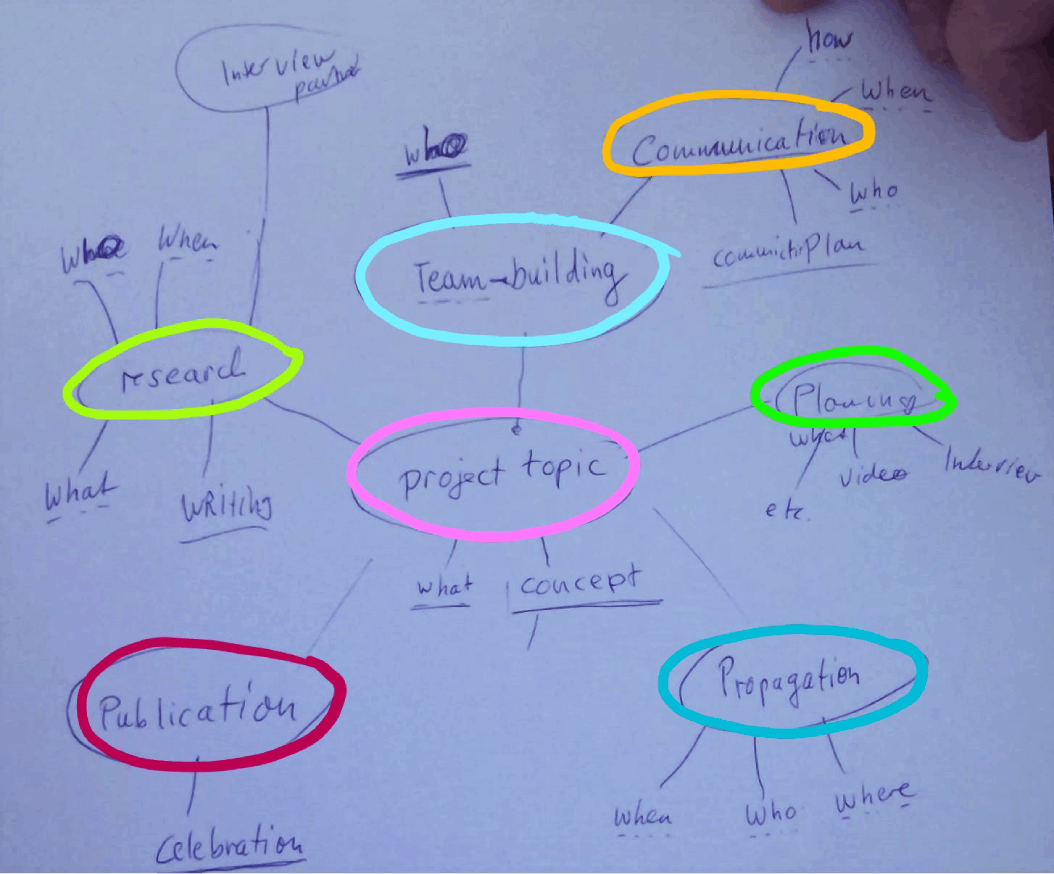 how
Interview
partner
When
Communication
who
Who
who
When
Plan
Team-building
research
Planing
project topic
what
Interview
video
What
WRitiNg
etc.
what
concept
Propagation
Publication
when
Who
where
celebration